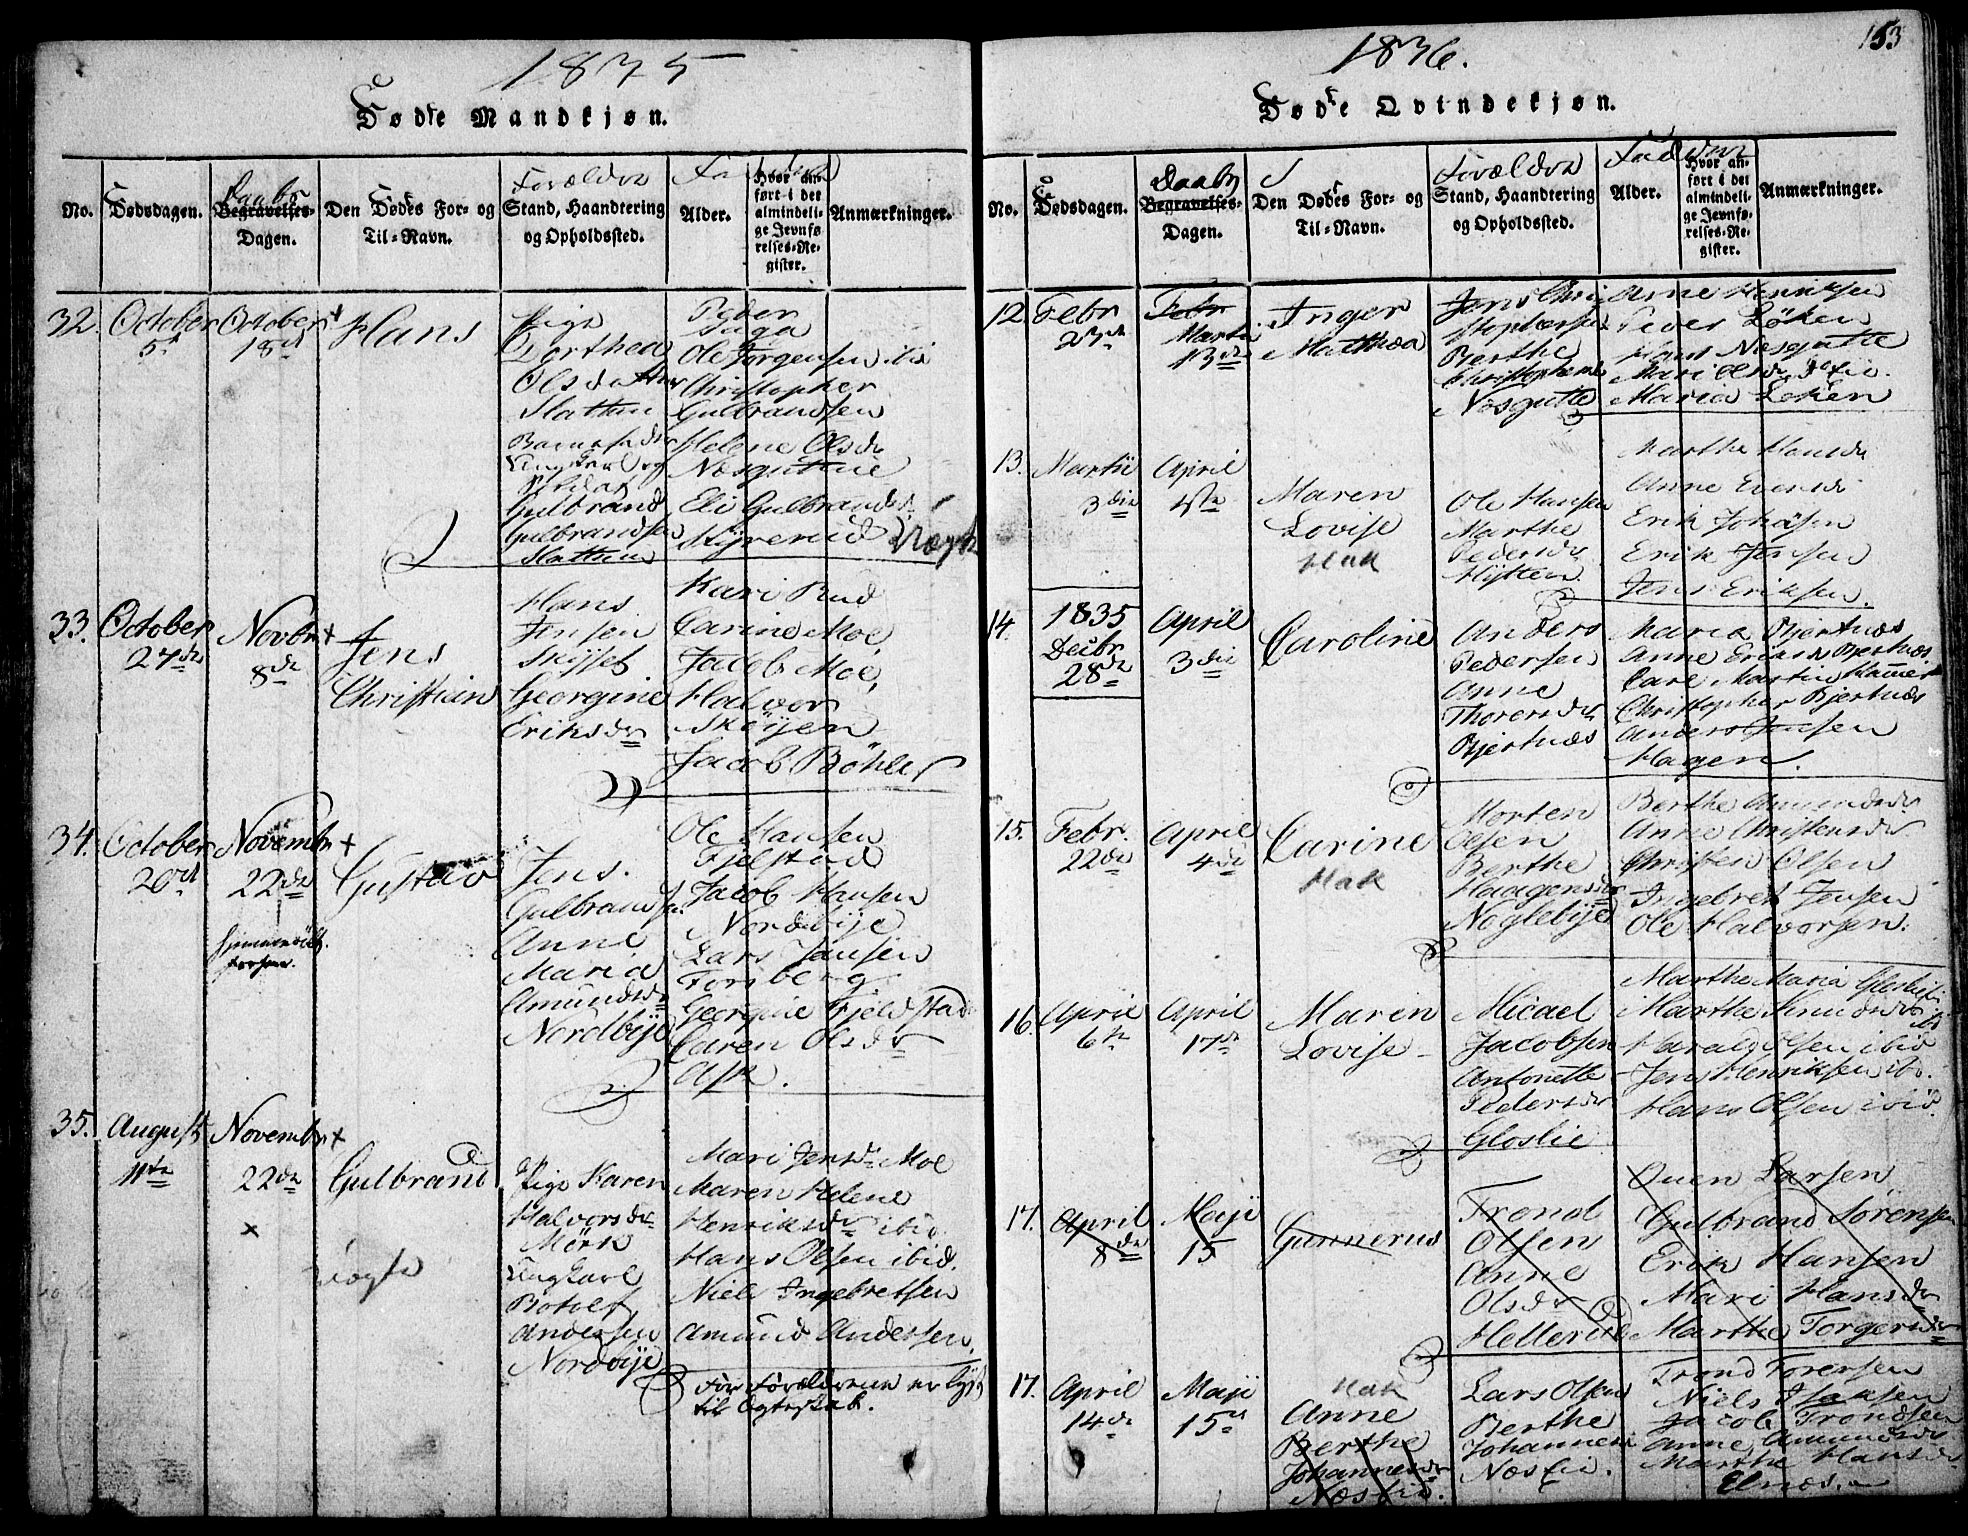 1835
Dødte Mandkjøn.
No.
Dødsdagen.
Daabs
Begravelses-
Dagen.
Den Dødes For- og
Til-Navn.
Forældre
Stand, Haandtering
og Opholdssted.
Alder.
Hvor an-
ført i det
almindeli-
ge Jevnfø-
relses-Re-
gister.
Anmærkninger.
32.
October
5t
October
18d
Hans
Pige
Dorthea
Olsdatter
Slattum
Gulbrand
Gulbrandsen
Slattum
Peder
Ole Jørgensen ibid
Christopher
Gulbrandsen
Helene Olsdr
Eli Gulbrandsdr
Kÿrerud
33.
October
27de
Novbr
8de
Jens
Christian
Hans
Jensen
Skÿset
Georgine
Eriksdr
Kari Rud
Carine Moe,
Jacob Moe,
Halvor
Skøÿen
Jacob Bøhler
34.
October
20d
Novembr
22de
Gustav
Jens
Gulbrandsen
Anne
Maria
Amundsdr
Nordbÿe
Ole Hansen
Fjelstad
Jacob Hansen
Nordbÿe
Lars Jansen
Forsberg
Georgine Fjeldstad
Caren Olsdr
Ask.
35.
August
11te
Novembr
22de
Gulbrand
Pige Karen
Halvorsdr
Mørk
Ungkarl
Botolf
Andersen
Nordbÿe
Mari Jensdr Moe
Maren Helene
Henriksdr ibid
Hans Olsen ibid.
Niels Ingebretsen
Amund Andersen.
For Forældrene er lÿst
til Ægteskab.
153
1836.
Døde Qvindekjøn.
No.
Dødsdagen.
Daabs
Begravelses-
Dagen.
Den Dødes For- og
Til-Navn.
Forældre
Stand, Haandtering
og Opholdssted.
Fadderne
Alder.
Hvor an-
ført i det
almindeli-
ge Jevnfø-
relses-Re-
gister.
Anmærkninger.
12.
Febr
23de
Febr
Martii
13de
Inger
Mathea
Jens Chri
stophersen
Berthe
Christophersd
Næsgutte
Anne Henriksen
Peder Løken
Hans Næsgutte
Mari Olsdr
Maria Løken
13.
Martii
3die
April
4de
Maren
Lovise
Hak
Ole Hansen
Marthe
Pedersdr
Hÿtten
Marthe Hansdr
Anne Evensdr
Erik Johansen
Erik Jensen
Jens Eriksen.
14.
1835
Decbr
28de
April
3die
Caroline
Anders
Pedersen
Anne
Thorersdr
Bjertnæs
Maria Bjertnæs
Anne Eriksdr Bjertnæs
Carl Martin Hammer
Christopher Bjertnæs
Anders Jensen
Hagen.
15.
Febr.
22de
April
4de
Carine
Hak
Morten
Olsen
Berthe
Haagensdr
Noglebÿe
Berthe Amundsdr
Anne Christensdr
Christen Olsen
Ingebret Jensen
Ole Halvorsen.
16.
April
6te
April
17de
Maren
Lovise
Micael
Jacobsen
Antonette
Pedersdr
Gloslie
Marthe Maria Gloslie
Marthe Knudsdr
ib
Harald Olsen ibid
Jens Henriksen ibd.
Hans Olsen ibid.
17.
April
8de
Maji
15
Gunnerus
Trond
Olsen
Anne
Olsdr
Hellerud
Ouen Larsen
Gulbrand Sørensen
Erik Hansen
Mari Hansdr
Marthe Torgersdr
17.
April
14de
Maji
15d
Hak
Anne
Berthe
Johannesdr
Næslie.
Lars Olsen
Berthe
Johannesd
Næslie.
Trond Torersen
Niels Isaksen
Jacob Trondsen
Anne Amundsdr
Marthe Hansdr
Elnæs.